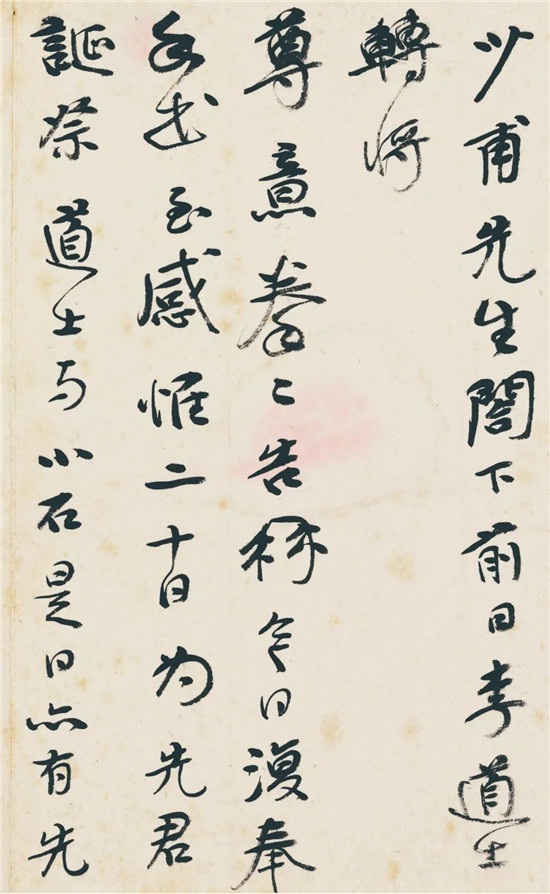 少甫先生閣下前日李道士
轉将
尊意拳〻告今日復奉
手书至感惟二十日为先君
誕祭道士与小石是日亦有先